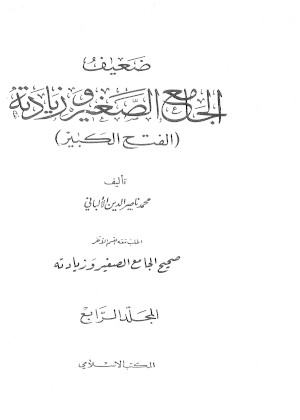 ضعيف
الجامع الصغير وزيادته
(الفتح الكبير)
تأليف
محمد ناصر الدين الألباني
اطلب معه القسم الآخر
صحيح الجامع الصغير وزيادته
المجلد الرابع
المكتب الإسلامي